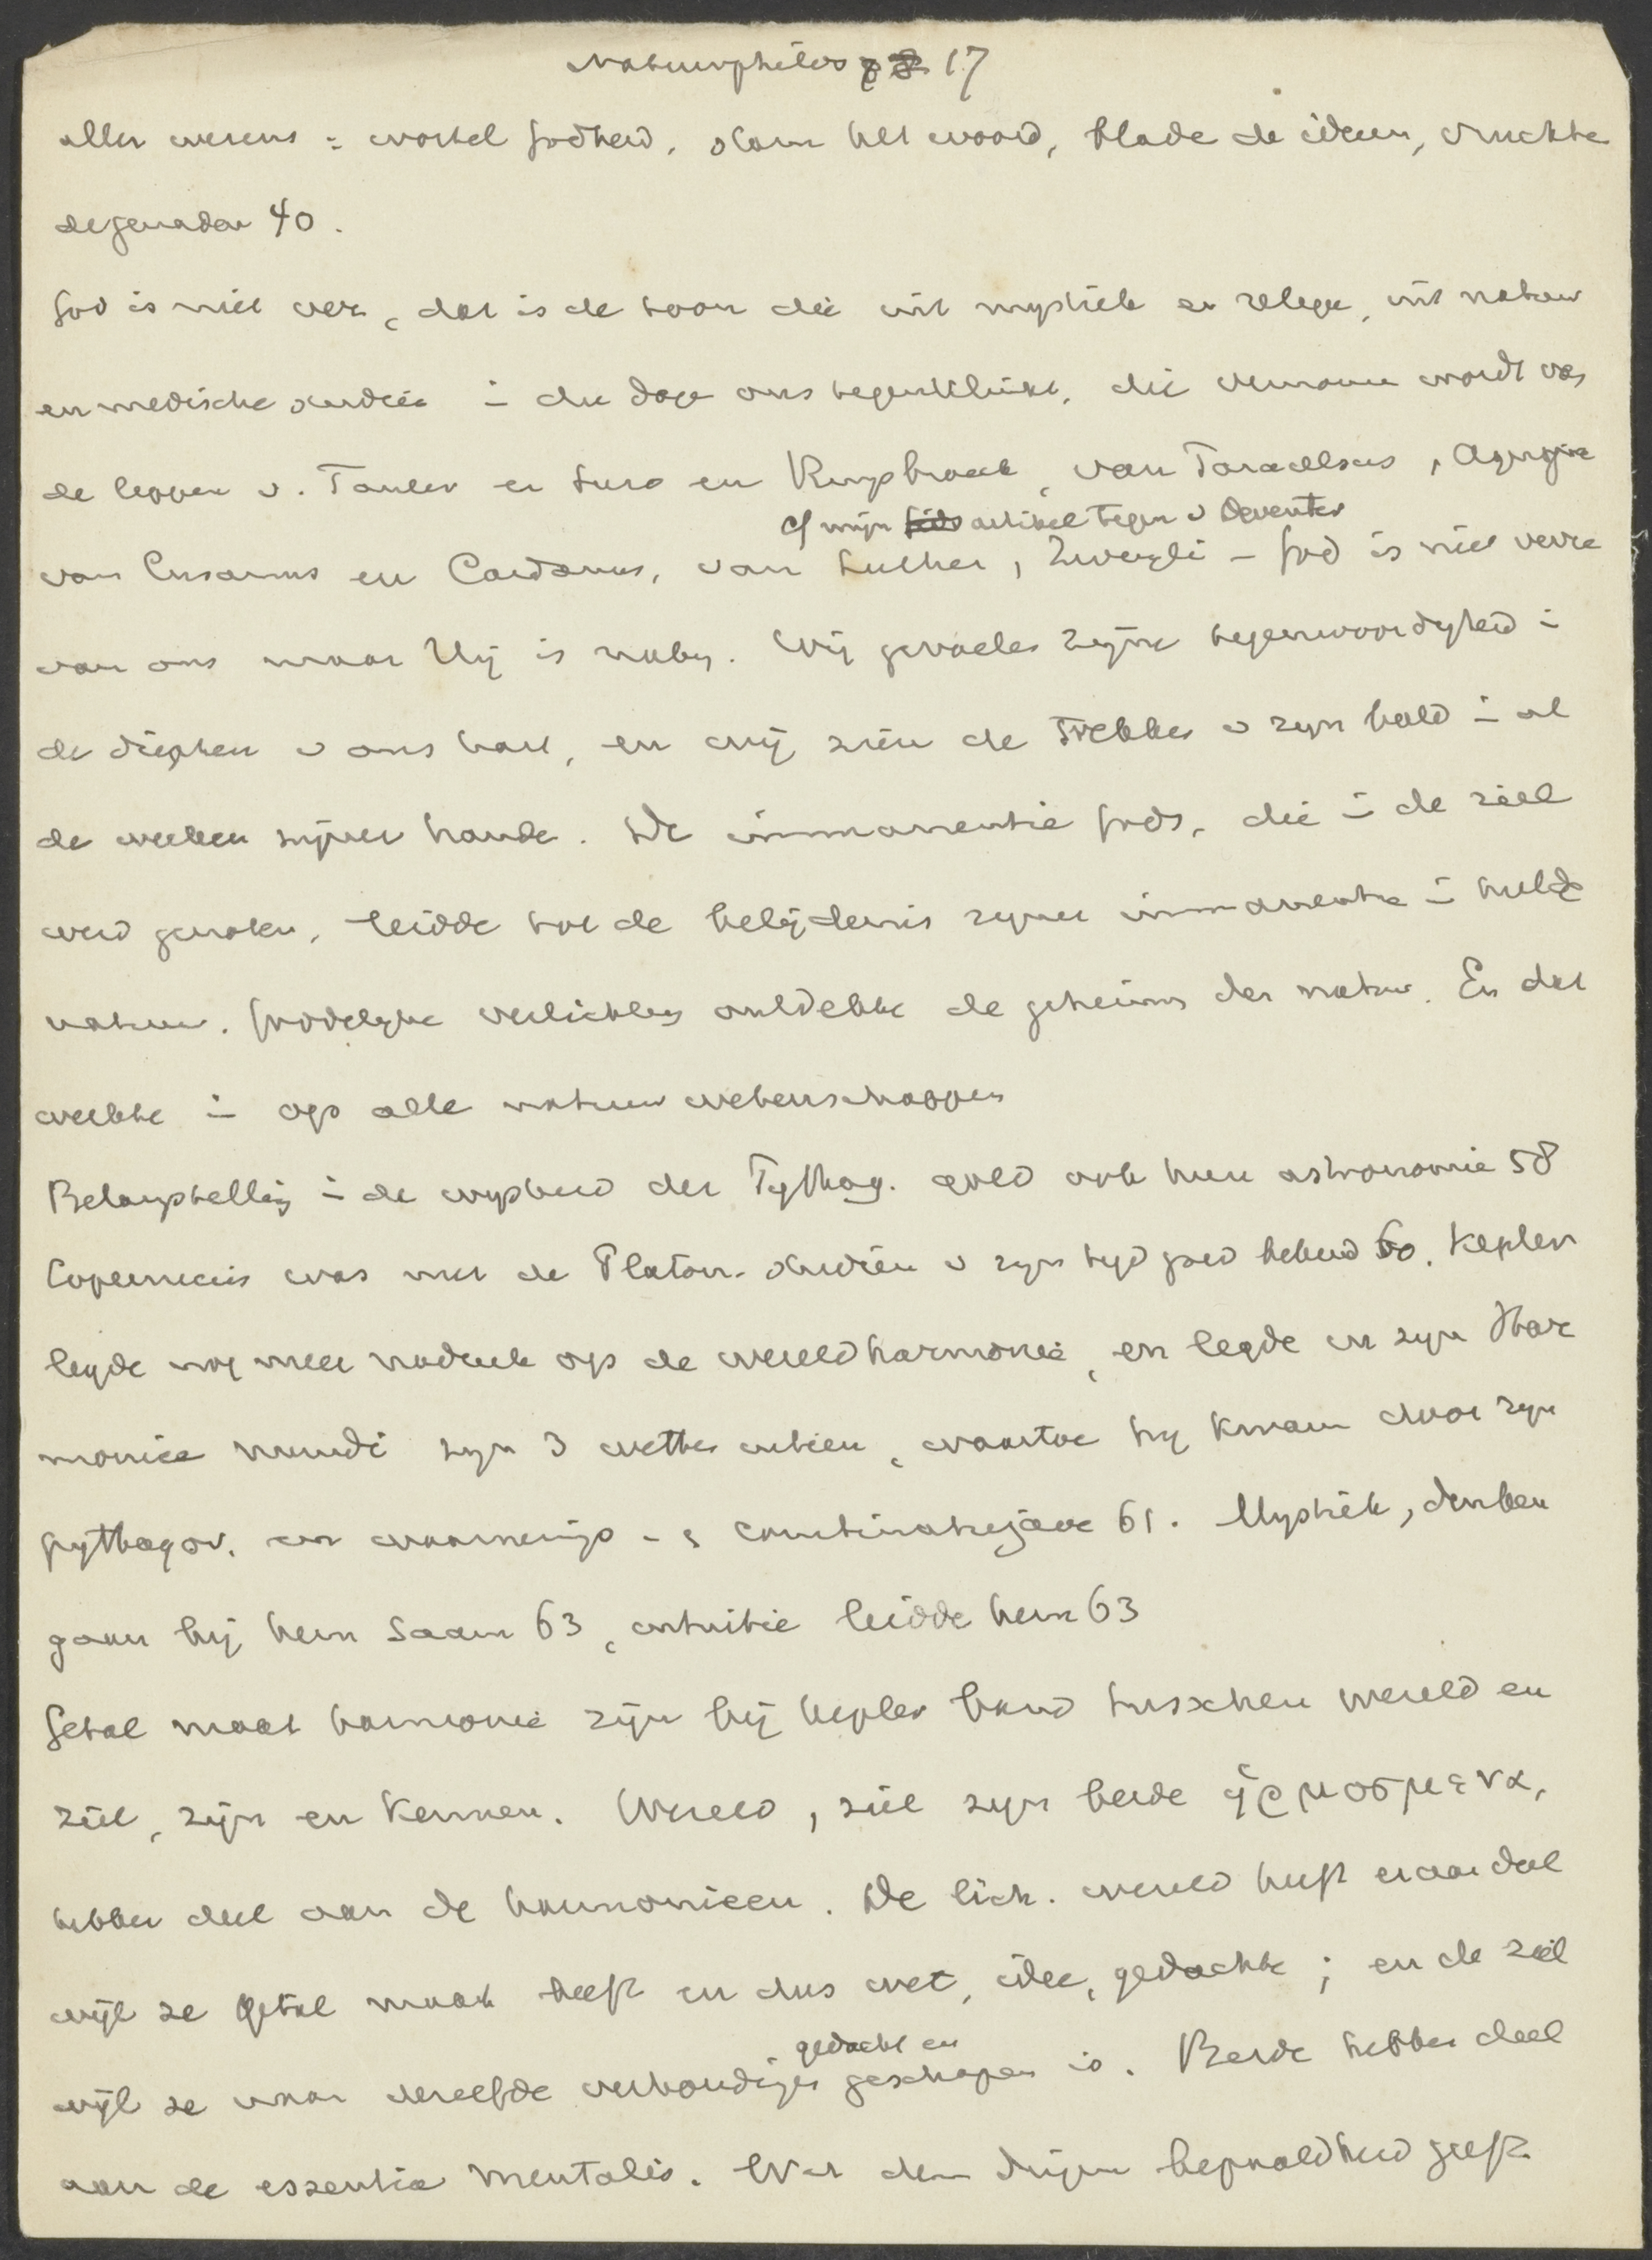 Natuurphilos 17
aller wezens : wortel godheid, stam het woord, blade de ideeen, vruchte
de genaden 40.
God is niet ver, dat is de toon die uit mystiek en religie, uit natuur
en medische studie i die dage ons tegenklinkt, die vernomen wordt van
de lippen v. Tauler en Suso en Ruysbroek, van Paracelsus, Agrippa
cf mijn artikel tegen v Deventer
van Cusanus en Cardanus, van Luther, Zwingli – God is niet verre
van ons maar Hij is naby. Wij gevoelen zijne tegenwoordigheid i
de diepten v ons hart, en wij zien de trekken v zyn beeld i al
de werken zijner hande. De immanentie Gods, die i de ziel
werd genoten, leidde tot de belijdenis zyner immanentie i heel de
natuur. Goddelyke verlichting ontdekte de geheims der natuur. En dat
werkte i op alle natuurwetenschappen
Belangstelling i de wysheid der Pythag. gold ook hun astronomie 58
Copernicus was met de Platon. studien v zyn tyd goed bekend 60. Kepler
legde nog meer nadruk op de wereldharmonie, en legde in zyn Har
monice mundi zyn 3 wetten uiteen, waartoe hy kwam door zyn
pythagor. en waarnemings- & combinatiegave 61. Mystiek, denken
gaan bij hem saam 63, intuitie leidde hem 63
Getal maat harmonie zijn bij Kepler band tusschen wereld en
ziel, zijn en kennen. Wereld, ziel zyn beide ἡρμοσμενα,
hebben deel aan de harmonieen. De lich. wereld heeft eraan deel
wijl ze getal maat heeft en dus wet, idee, gedachte; en de ziel
gedacht en
wijl ze naar dezelfde verhoudingen geschapen is. Beide hebben deel
aan de essentia mentalis. Wat den dingen bepaaldheid geeft